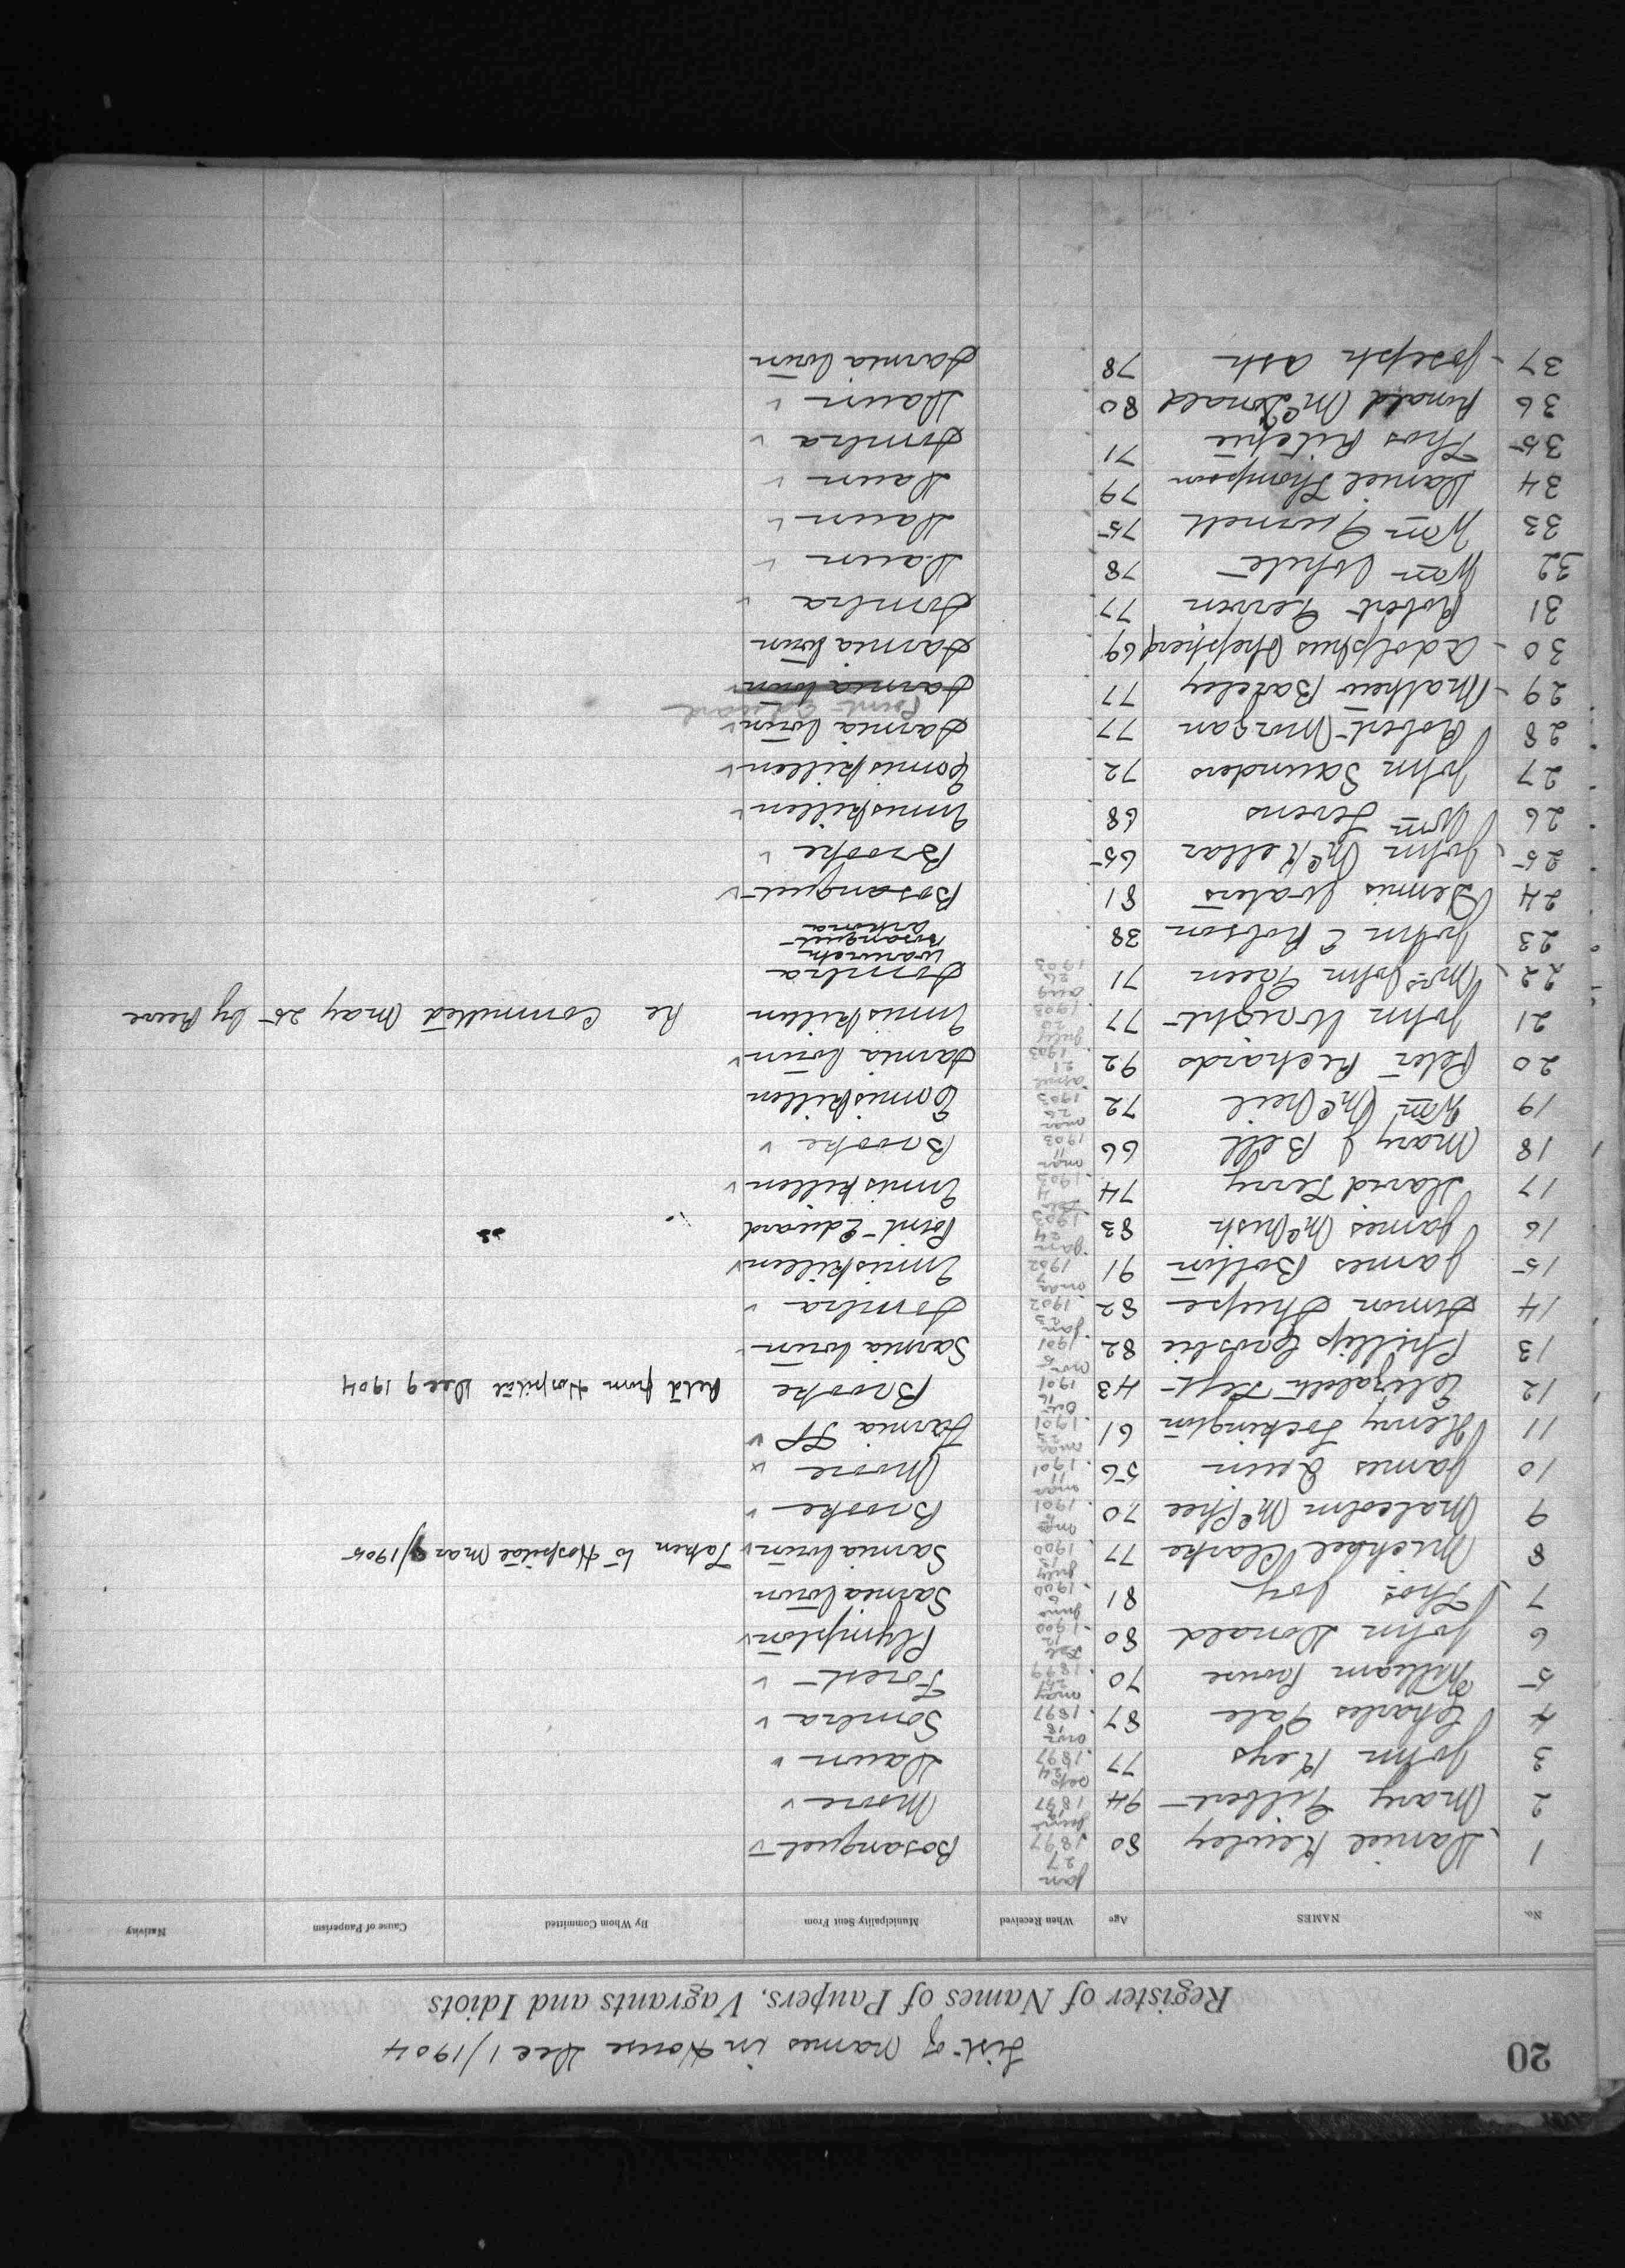 20
List of Names in House Dec 1/1904
Register of Names of Paupers, Vagrants and Idiots
No. NAMES Age When Received Municipality Sent From By Whom Committed Cause of Pauperism Nativity
1 Daniel Kewley 80 Jan 27 1897 Bosanquet
2 Mary Gilbert 94 1897 Moore
3 John Keys 77 Sep 24 1897 Dawn
4 Charles Gale 87 Nov 18 1897 Sombra
5 William Rouse 70 May 25 1899 Forest
6 John Donald 80 Feb 12 1900 Plympton
7 Thos Joy 81 June 6 1900 Sarnia town
8 Michael Clarke 77 July 13 1900 Sarnia town Taken to Hospital Mar /1905
9 Malcolm McPhee 70 1901 Brooke
10 James Quin 56 Mar 11 1901 Moore
11 Henry Lockington 61 Mar 22 1901 Sarnia Tp
12 Elizabeth Left 43 Oct 16 1901 Brooke Retd from Hospital Dec 9 1904
13 Phillip Crosbie 82 Nov 5 1901 Sarnia town
14 Simon Shupe 82 Jan 23 1902 Sombra
15 James Bolton 91 Mar 7 1902 Inniskillen
16 James McNish 83 Jan 24 1903 Point Edward
17 David Terry 74 Feb 4 1903 Inniskillen
18 Mary J Bell 66 Mar 11 1903 Brooke
19 Wm McNeil 72 Mar 26 1903 Enniskillen
20 Peter Richards 92 April 21 1903 Sarnia town
21 John Wright 77 July 23 1903 Inniskillen Re Committed May 25 by Reeve
22 Mrs John Green 71 Aug 26 1903 Sombra
23 John E Robson 38 Warwick Bosanquet Arkona
24 Dennis Waters 81 Bosanquet
25 John McKellar 65 Brooke
26 Wm Ferens 68 Inniskillen
27 John Saunders 72 Enniskillen
28 Robert Morgan 77 Sarnia town
Point Edward
29 Mathew Bateley 77 Sarnia town
30 Adolphus Sheppard 69 Sarnia town
31 Robert Gerven 77 Sombra
32 Wm White 78 Dawn
33 Wm Gurnett 75 Dawn
34 Daniel Thompson 79 Dawn
35 Thos Ritchie 71 Sombra
36 Ronald McDonald 80 Dawn
37 Joseph Ash 78 Sarnia town